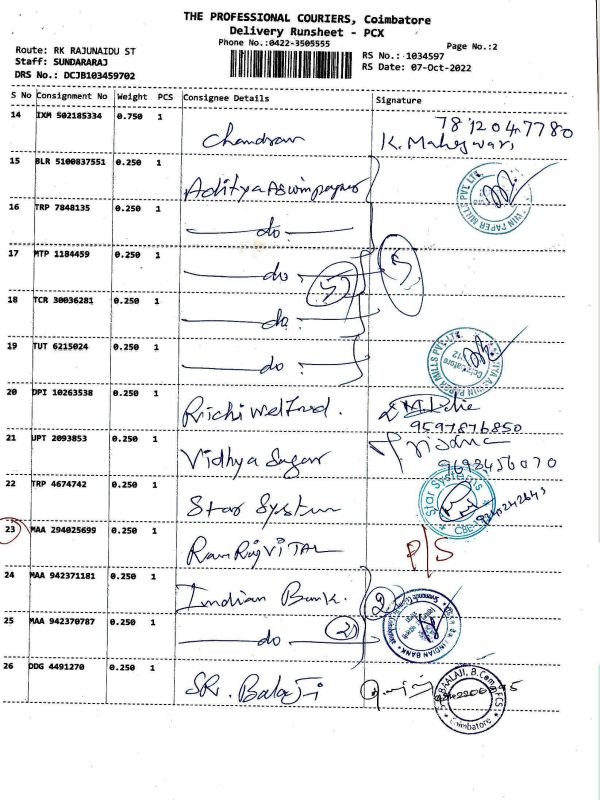 THE PROFESSIONAL COURIERS, Coimbatore
Delivery Runsheet - PCX
Phone No.:0422-3505555
Page No.:2
Route: RK RAJUNAIDU ST
RS No.:1034597
Staff: SUNDARARAJ
RS Date: 07-Oct-2022
DRS No.: DCJB103459702
S No Consignment No Weight PCS Consignee Details Signature
14 IXM 502185334 0.750 1 Chandran
K. Maheswari
15 BLR 5100837551 0.250 1
16 TRP 7848135 0.250 1 do.
17 MTP 1184459 0.250 1 do. 5 5
18 TCR 30036281 0.250 1 do.
19 TUT 6215024 0.250 1 do.
20 DPI 10263538 0.250 1
9597876850
21 UPT 2093853 0.250 1 Vidhya Sagar
22 TRP 4674742 0.250 1 Star System
Star Systems
23 MAA 294025699 0.250 1 P/S
24 MAA 942371181 0.250 1 Indian Bank. 2
25 MAA 942370787 0.250 1 do 2
INDIAN BANK
26 DDG 4491270 0.250 1 SR. Balaji
Coimbatore